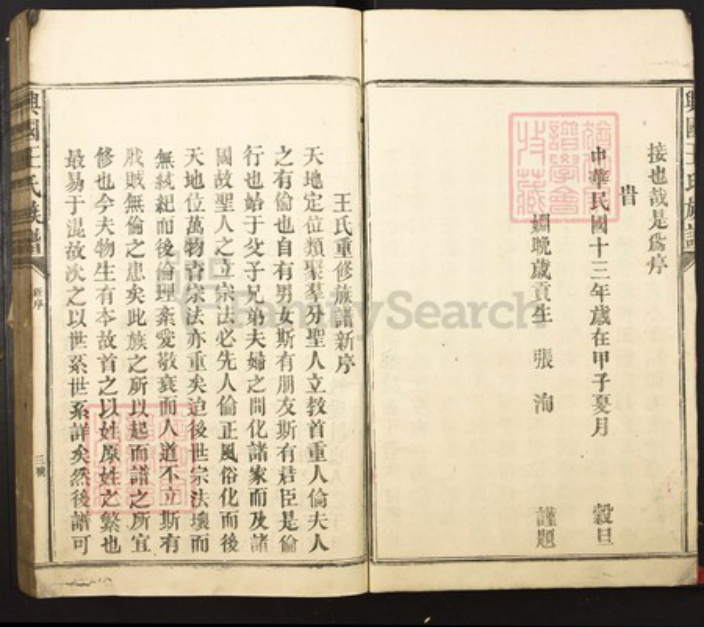 接也哉是爲序
旹
中華民國十三年歲在甲子夏月 穀旦
姻晚歲貢生 張洵 謹題
興國王氏族譜
王氏重修族譜新序
天地定位類聚羣分聖人立教首重人倫夫人
之有倫也自有男女斯有朋友斯有君臣是倫
行也始于父子兄弟夫婦之間化諸家而及諸
國故聖人之立宗法必先人倫正風俗化而後
天地位萬物育宗法亦重矣迨後世宗法壞而
無統紀而後倫理紊愛敬衰而人道不立斯有
戕賊無倫之患矣此族之所以起而譜之所宜
修也今夫物生有本故首之以姓原姓之繁也
最易于混故次之以世系世系詳矣然後譜可
興國王氏族譜
新序
三號
FamilySearch